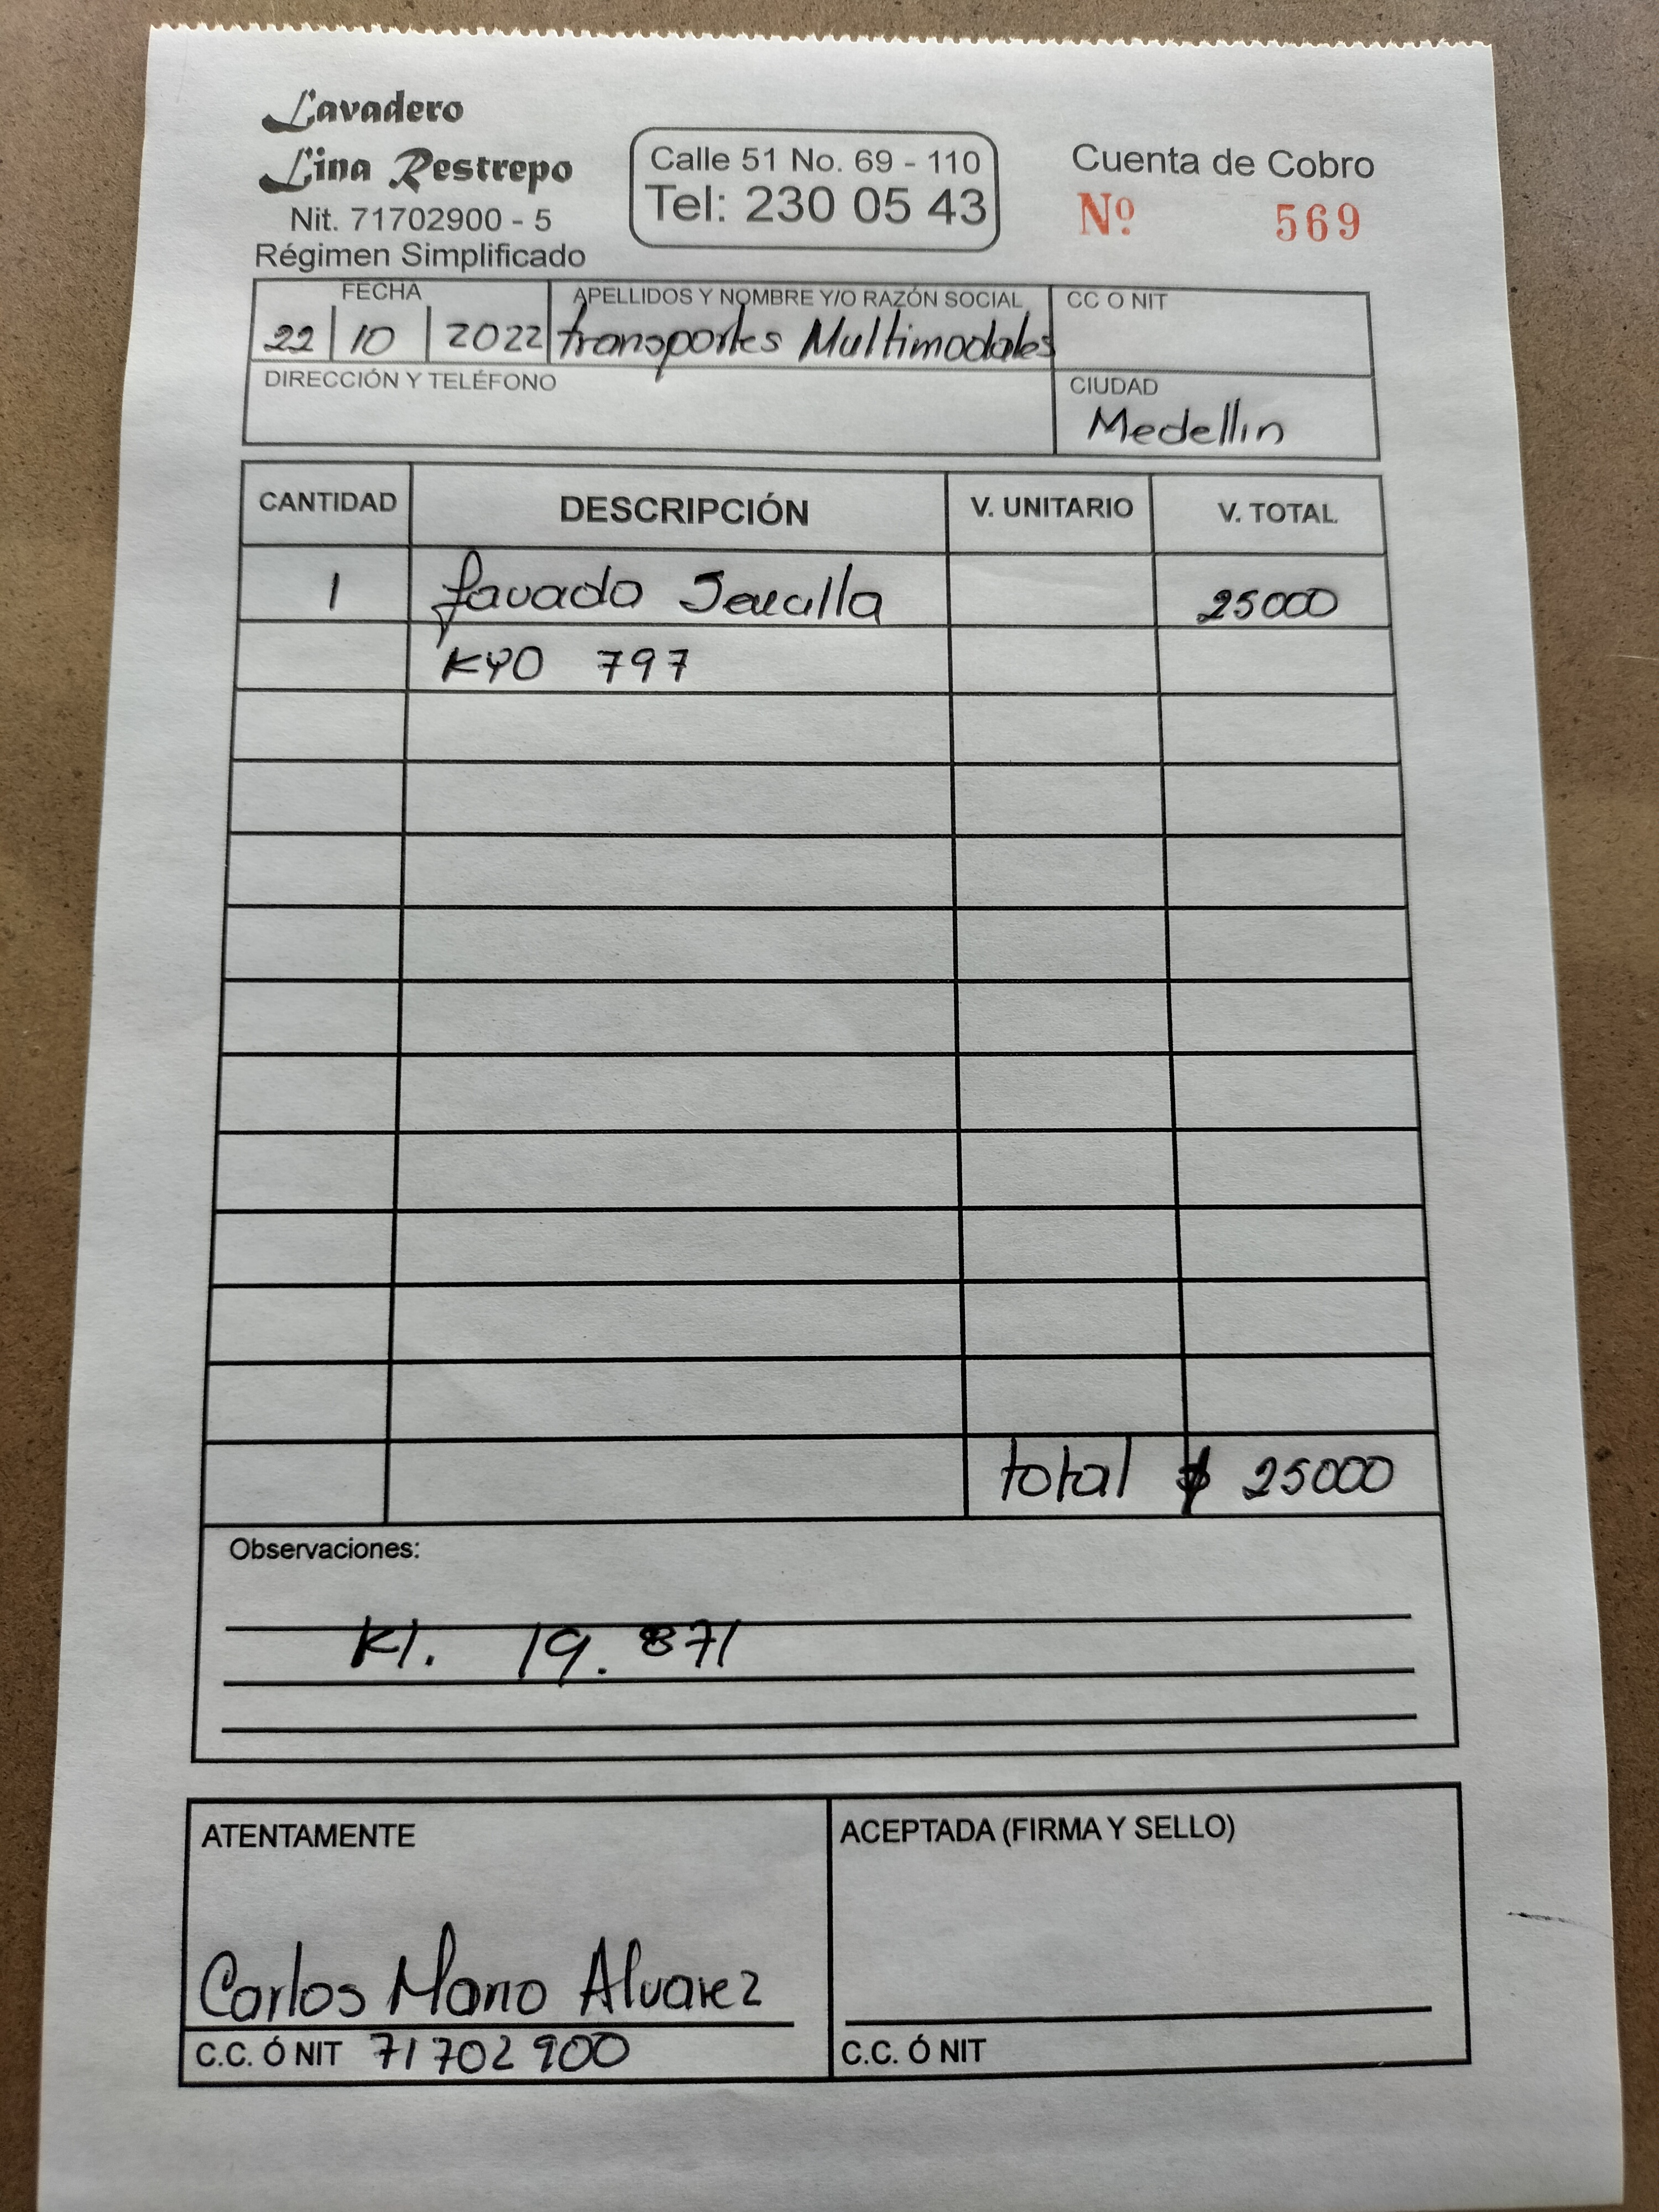 Lavadero
Lina Restrepo
Nit. 71702900 - 5
Régimen Simplificado
Calle 51 No. 69 - 110
Tel: 230 05 43
Cuenta de Cobro
Nº 569
FECHA APELLIDOS Y NOMBRE Y/O RAZÓN SOCIAL CC O NIT
22 10 2022 transportes Multimodales
DIRECCIÓN Y TELÉFONO CIUDAD
Medellin
CANTIDAD DESCRIPCIÓN V. UNITARIO V. TOTAL
1 lavada Sencilla 25000
KYO 797
total $ 25000
Observaciones:
Kl. 19.871
ATENTAMENTE ACEPTADA (FIRMA Y SELLO)
Carlos Mario Alvarez
C.C. Ó NIT 71702900 C.C. Ó NIT